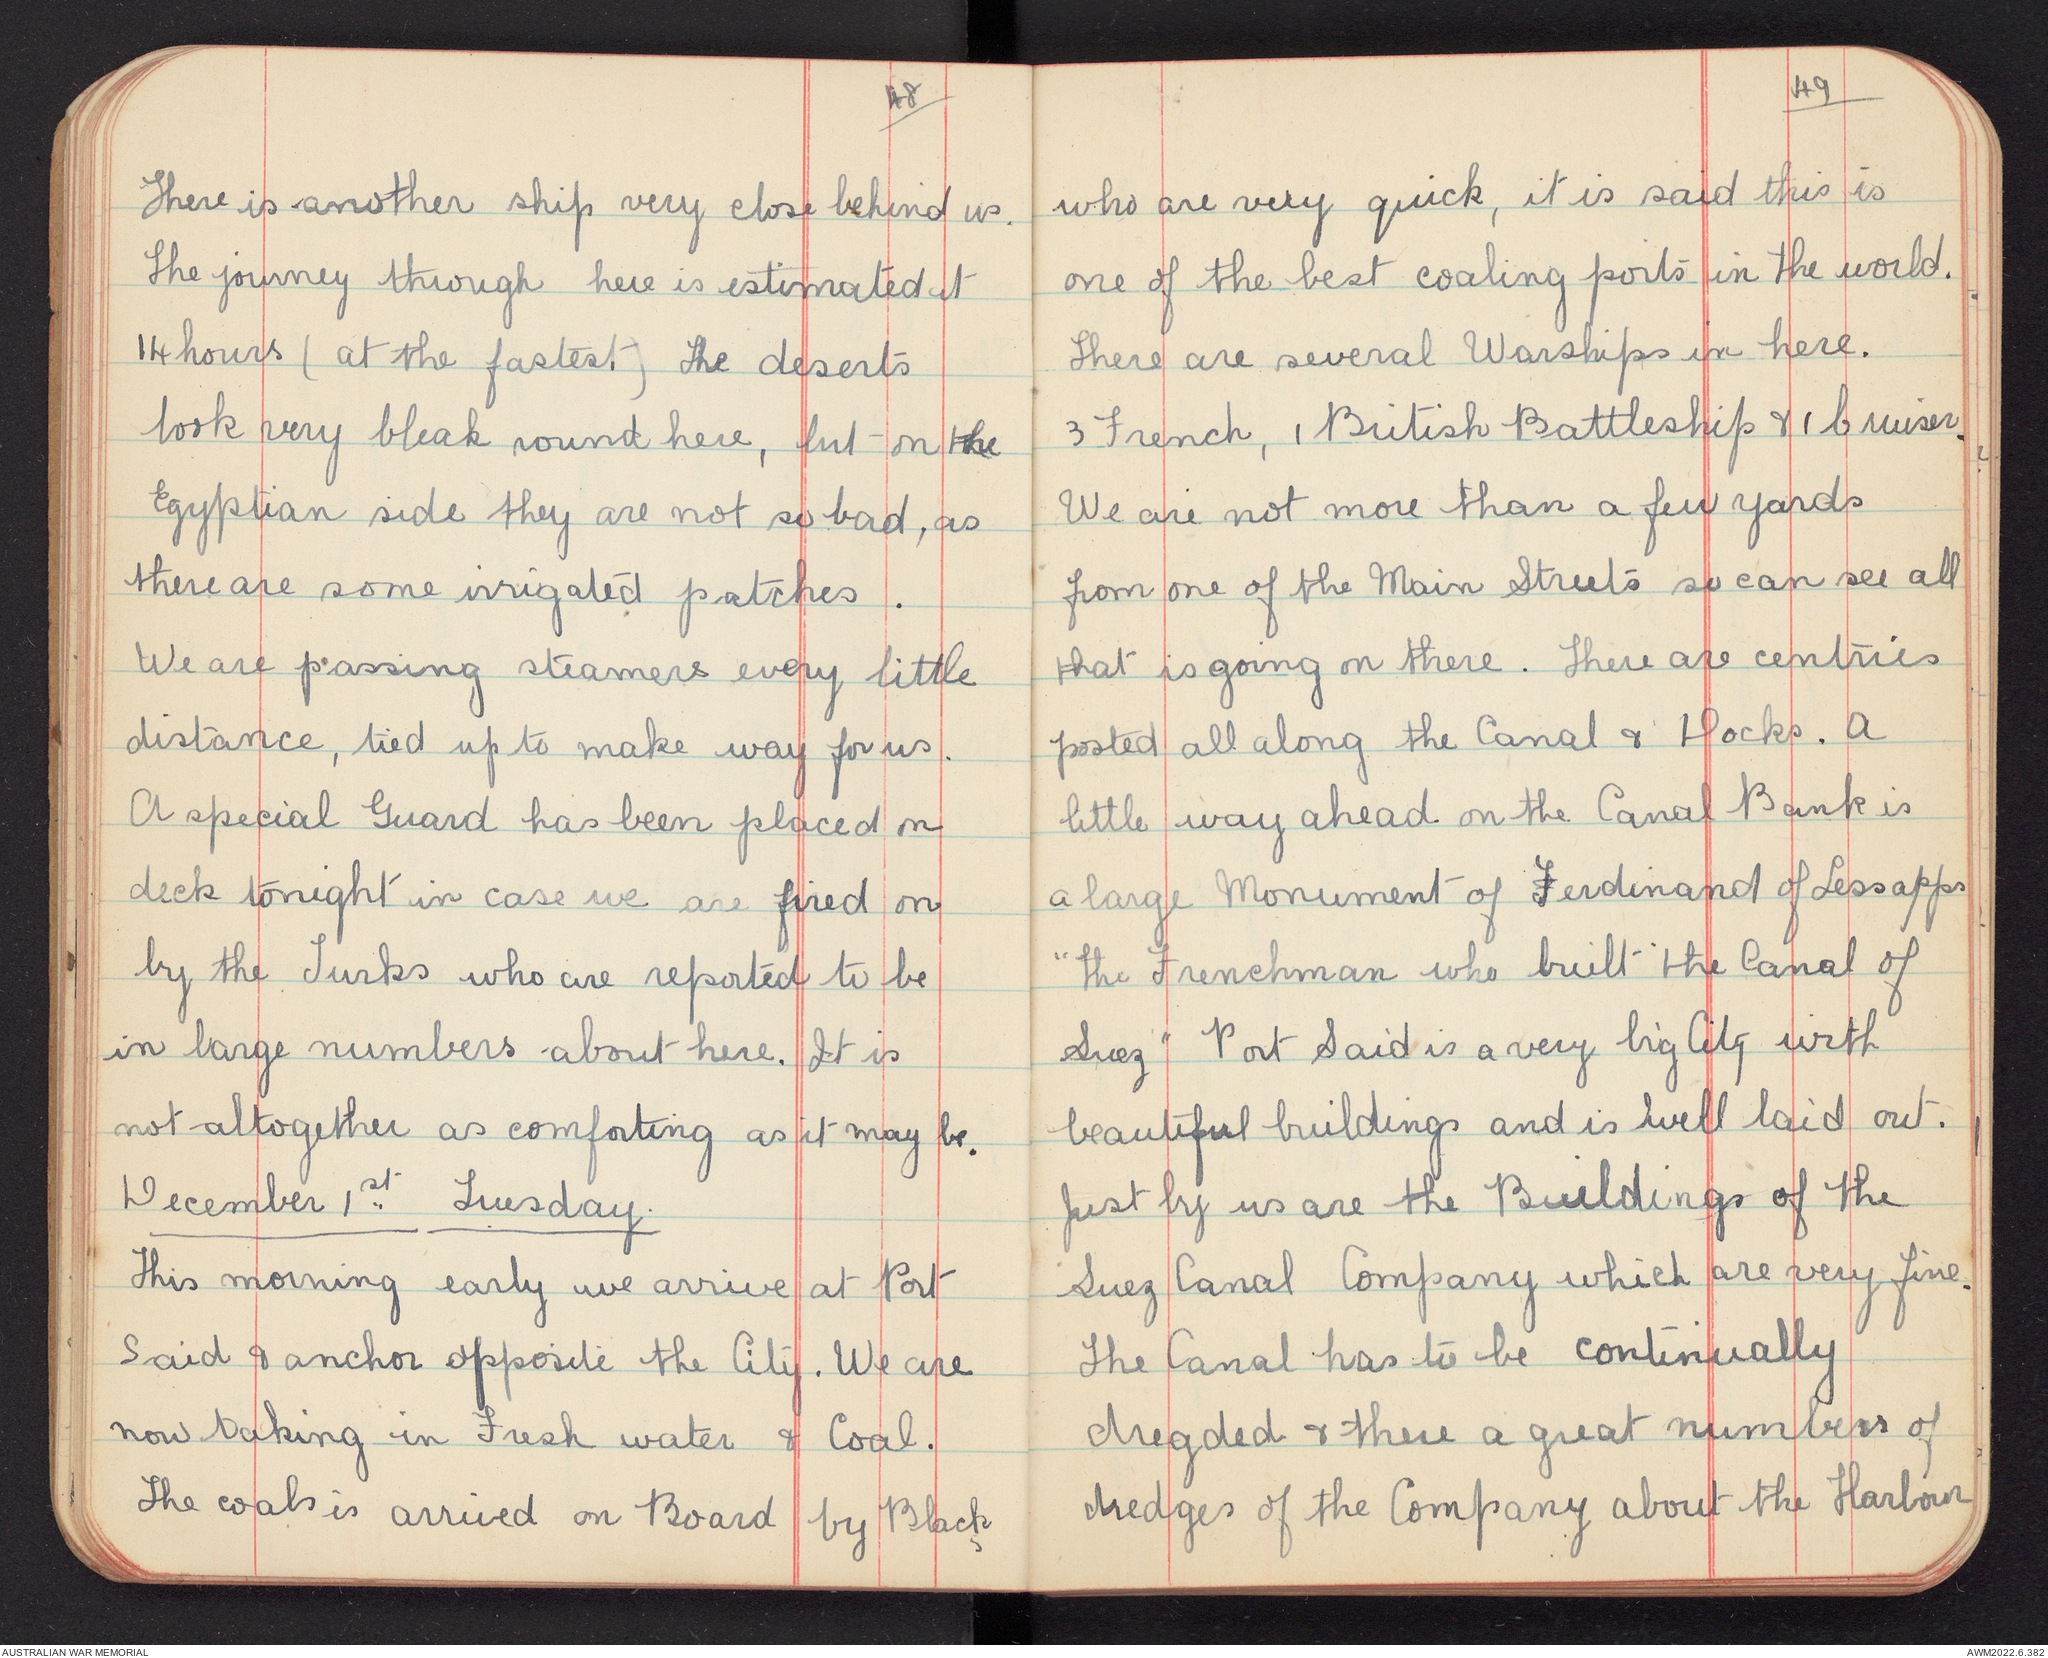 48
There is another ship very close behind us.
The journey through here is estimated at
14 hours (at the fastest) The deserts
look very bleak round here, but on the
Egyptian side they are not so bad, as
there are some irrigated patches .
We are passing steamers every little
distance, tied up to make way for us.
A special Guard has been placed on
deck tonight in case we are fired on
by the Turks who are reported to be
in large numbers about here. It is
not altogether as comforting as it may be.
December 1st. Tuesday.
This morning early we arrive at Port
Said & anchor opposite the City. We are
now taking in Fresh water & Coal.
The coals is arrived on Board by Blacks
49
who are very quick, it is said this is
one of the best coaling ports in the world.
There are several Warships in here.
3 French, 1 British Battleship & 1 Cruiser.
We are not more than a few yards
from one of the Main Streets so can see all
that is going on there. There are centries
posted all along the Canal & Docks. A
little way ahead on the Canal Bank is
a large Monument of Ferdinand of Lessapps
"the Frenchman who built the Canal of
Suez" Port Said is a very big City with
beautiful buildings and is well laid out.
Just by us are the Buildings of the
Suez Canal Company which are very fine.
The Canal has to be continually
dregded & there a great numbers of
dredges of the Company about the Harbour
AUSTRALIAN WAR MEMORIAL
AWM2022.6.382